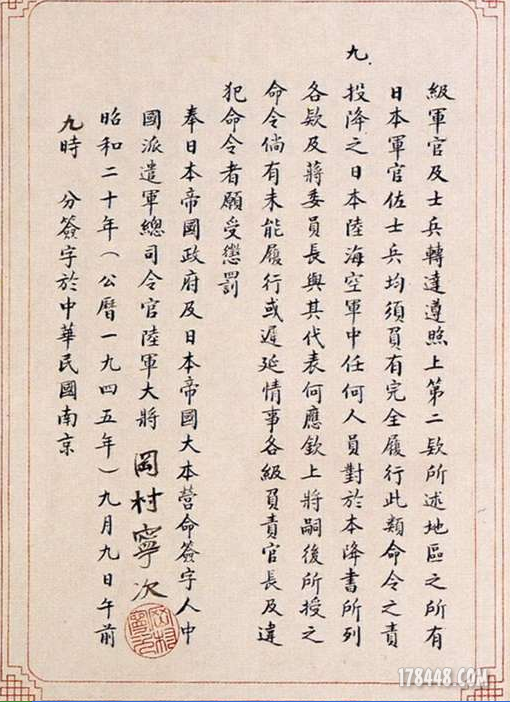 級軍官及士兵轉達遵照上第二欵所述地區之所有
日本軍官佐士兵均須負有完全履行此類命令之責
九、
投降之日本陸海空軍中任何人員對於本降書所列
各欵及蔣委員長與其代表何應欽上將嗣後所授之
命令倘有未能履行或遲延情事各級負責官長及違
犯命令者願受懲罰
奉日本帝國政府及日本帝國大本營命簽字人中
國派遣軍總司令官陸軍大將 岡村寧次
昭和二十年（公曆一九四五年）九月九日午前
九時　分簽字於中華民國南京
178448.COM